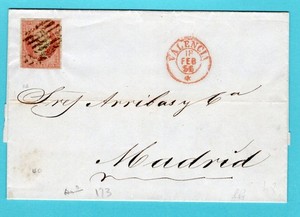 VALENCIA
FEB
56
Sres Arribas y Ca
Madrid
123